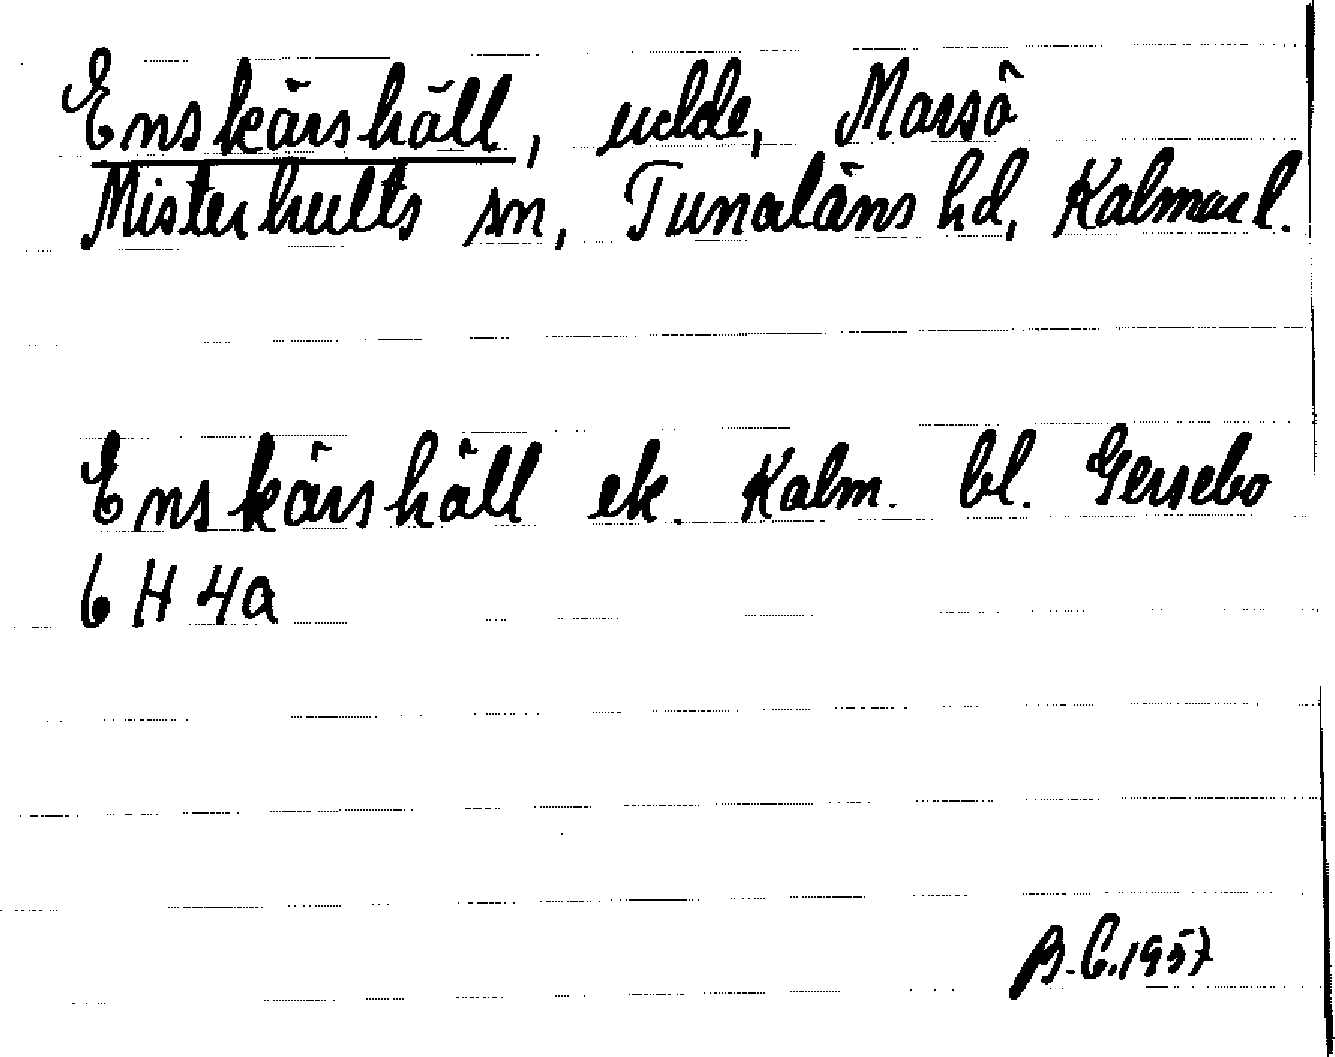 Enskärshäll, udde, Marsö
Misterhults sn, Tunaläns hd, Kalmar l.
Enskärshäll ek. Kalm. bl. Gersebo
6 H 4a
B.E.1957